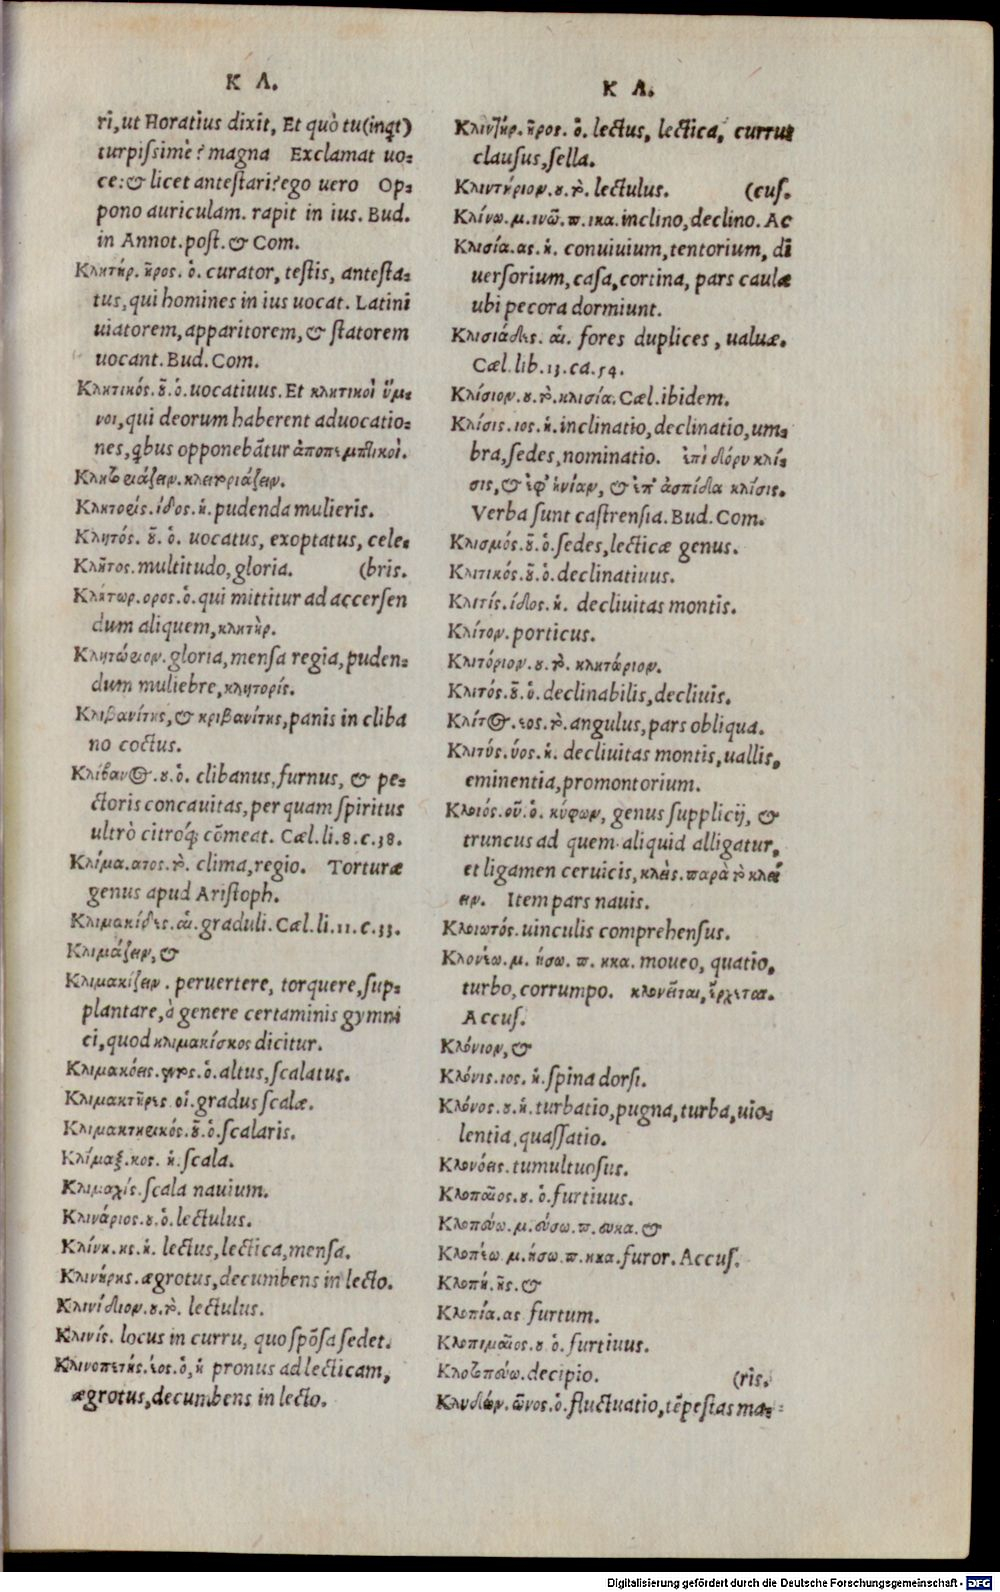 Κ Λ.
ri, ut Horatius dixit, Et quò tu (inqt)
turpissimè? magna Exclamat uo-
ce: & licet antestari? ego uero Op-
pono auriculam. rapit in ius. Bud.
in Annot. post. & Com.
Κλητήρ. ῆρος. ὁ. curator, testis, antesta-
tus, qui homines in ius uocat. Latini
uiatorem, apparitorem, & statorem
uocant. Bud. Com.
Κλητικός. οῦ. ὁ. uocatiuus. Et κλητικοὶ ὕμ-
νοι, qui deorum haberent aduocatio-
nes, qbus opponebãtur ἀποπεμπτικοί.
Κλητοριάζειν. κλειτοριάζειν.
Κλητορίς. ίδος. ἡ. pudenda mulieris.
Κλητός. οῦ. ὁ. uocatus, exoptatus, cele-
Κλῆτος. multitudo, gloria. (bris.
Κλήτωρ. ορος. ὁ. qui mittitur ad accersen
dum aliquem, κλητήρ.
Κλητώριον. gloria, mensa regia, puden-
dum muliebre, κλητορίς.
Κλιβανίτης, & κριβανίτης, panis in cliba
no coctus.
Κλίβανος. ου. ὁ. clibanus, furnus, & pe-
ctoris concauitas, per quam spiritus
ultrò citroq; cõmeat. Cæl. li. 8. c. 38.
Κλίμα. ατος. τὸ. clima, regio. Torturæ
genus apud Aristoph.
Κλιμακίδες. αἱ. graduli. Cæl. li. 11. c. 33.
Κλιμάζειν, &
Κλιμακίζειν. peruertere, torquere, sup-
plantare, à genere certaminis gymni
ci, quod κλιμακίσκος dicitur.
Κλιμακόεις. εντος. ὁ. altus, scalatus.
Κλιμακτῆρες οἱ. gradus scalæ.
Κλιμακτηρικός. οῦ. ὁ. scalaris.
Κλίμαξ. κος. ἡ. scala.
Κλιμαχίς. scala nauium.
Κλινάριος. ου. ὁ. lectulus.
Κλίνη. ης. ἡ. lectus, lectica, mensa.
Κλινήρης. ægrotus, decumbens in lecto.
Κλινίδιον. ου. τὸ. lectulus.
Κλινίς. locus in curru, quo spõsa sedet.
Κλινοπετής. έος. ὁ, ἡ pronus ad lecticam,
ægrotus, decumbens in lecto.
Κ Λ.
Κλιντήρ. ῆρος. ὁ. lectus, lectica, currus
clausus, sella.
Κλιντήριον. ου. τὸ. lectulus. (cus.
Κλίνω. μ. ινῶ. π. ικα. inclino, declino. Ac
Κλισία. ας. ἡ. conuiuium, tentorium, di
uersorium, casa, cortina, pars caulæ
ubi pecora dormiunt.
Κλισιάδες. αἱ. fores duplices, ualuæ.
Cæl. lib. 13. ca. 54.
Κλίσιον. ου. τὸ. κλισία. Cæl. ibidem.
Κλίσις. ιος. ἡ. inclinatio, declinatio, um-
bra, sedes, nominatio. ἐπὶ δόρυ κλί-
σις, & ἐφ' ἡνίαν, & ἐπ' ἀσπίδα κλίσις.
Verba sunt castrensia. Bud. Com.
Κλισμός. οῦ. ὁ. sedes, lecticæ genus.
Κλιτικός. οῦ. ὁ. declinatiuus.
Κλιτίς. ίδος. ἡ. decliuitas montis.
Κλίτον. porticus.
Κλιτόριον. ου. τὸ. κλητάριον.
Κλιτός. οῦ. ὁ. declinabilis, decliuis.
Κλίτος. εος. τὸ. angulus, pars obliqua.
Κλιτύς. ύος. ἡ. decliuitas montis, uallis,
eminentia, promontorium.
Κλοιός. οῦ. ὁ. κύφων, genus supplicij, &
truncus ad quem aliquid alligatur,
et ligamen ceruicis, κλεὶς. παρὰ τὸ κλεί
ειν. Item pars nauis.
Κλοιωτός. uinculis comprehensus.
Κλονέω. μ. ήσω. π. ηκα. moueo, quatio,
turbo, corrumpo. κλονεῖται, ἔρχεται.
Accus.
Κλόνιον, &
Κλόνις. ιος. ἡ. spina dorsi.
Κλόνος. ου. ἡ. turbatio, pugna, turba, uio-
lentia, quassatio.
Κλονόεις. tumultuosus.
Κλοπαῖος. ου. ὁ. furtiuus.
Κλοπεύω. μ. εύσω. π. ευκα. &
Κλοπέω. μ. ήσω. π. ηκα. furor. Accus.
Κλοπή. ῆς. &
Κλοπία. ας furtum.
Κλοπιμαῖος. ου ὁ. furtiuus.
Κλοτοπεύω. decipio. (ris.
Κλυδών. ῶνος. ὁ. fluctuatio, tẽpestas ma-
Digitalisierung gefördert durch die Deutsche Forschungsgemeinschaft - DFG